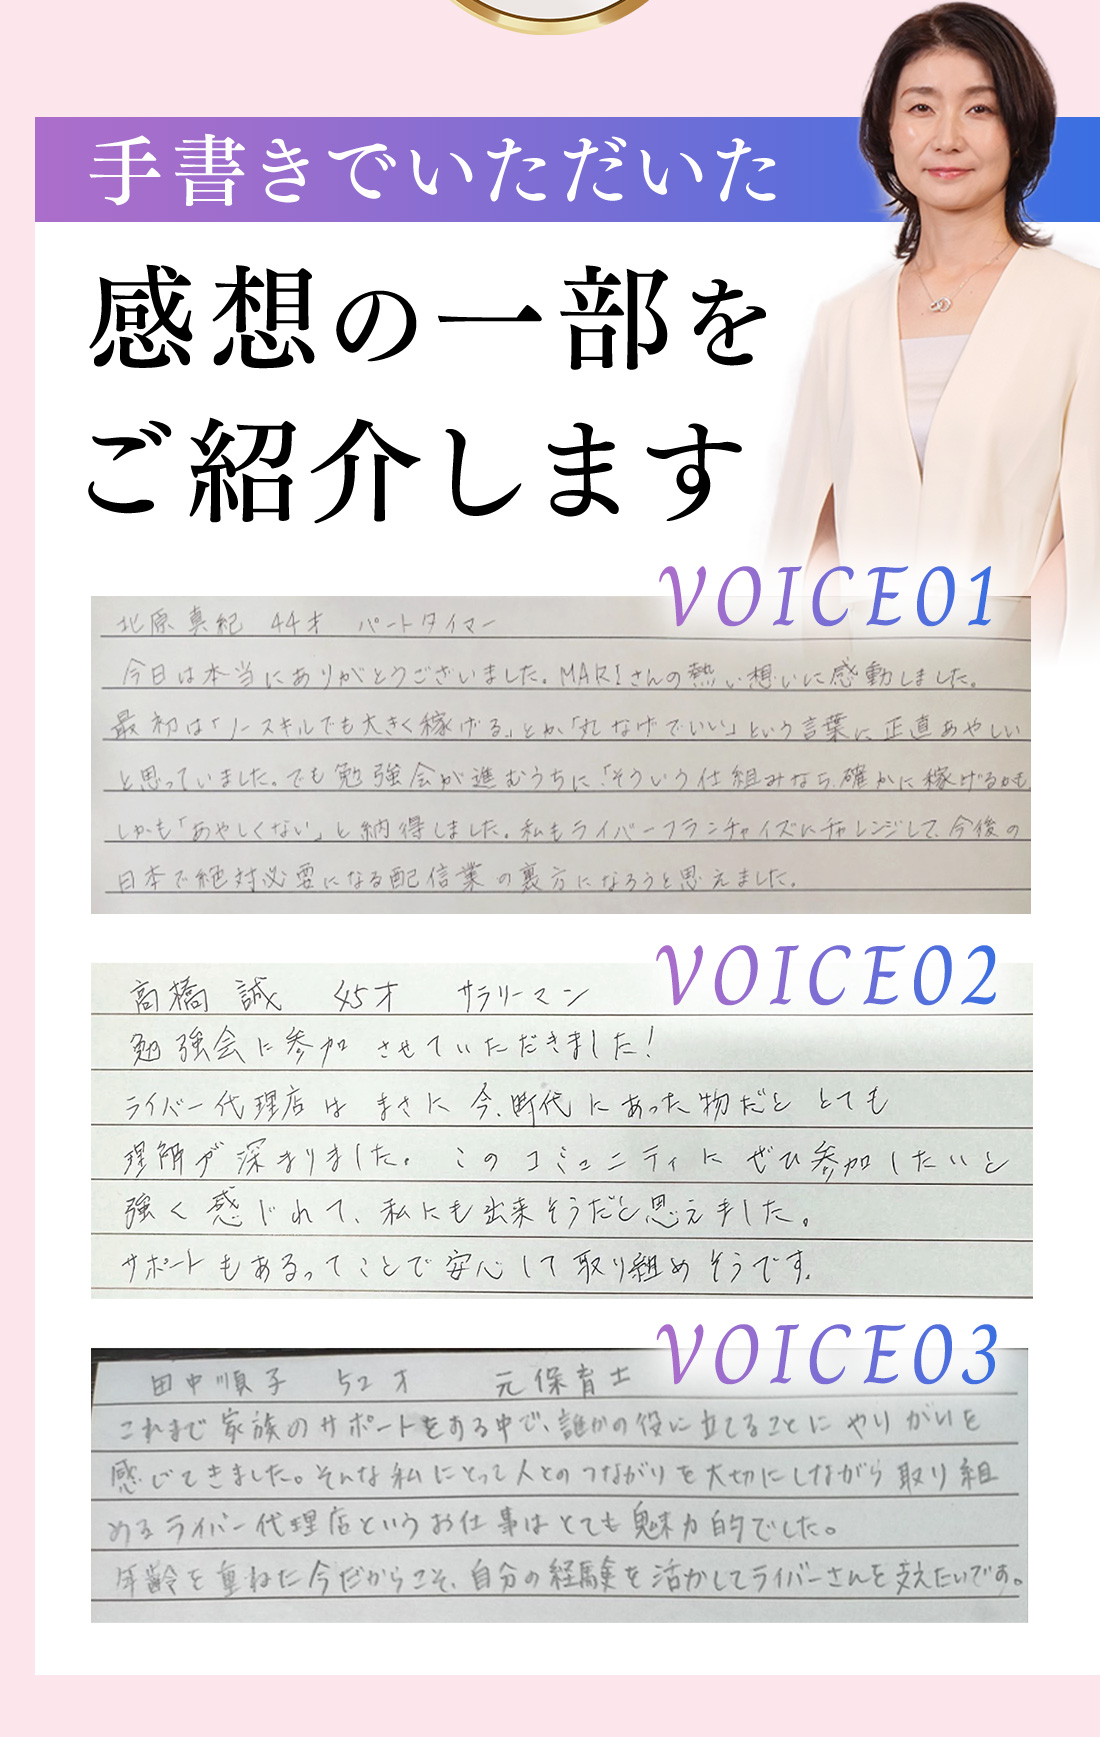 手書きでいただいた
感想の一部を
ご紹介します
VOICE01
北原真紀 44才 パートタイマー
今日は本当にありがとうございました。MARIさんの熱い想いに感動しました。
最初は「ノースキルでも大きく稼げる」とか「丸なげでいい」という言葉に正直あやしい
と思っていました。でも勉強会が進むうちに「そういう仕組みなら確かに稼げるかも
しかも「あやしくない」と納得しました。私もライバーフランチャイズにチャレンジして、今後の
日本で絶対必要になる配信業の裏方になろうと思えました。
VOICE02
高橋 誠 45才 サラリーマン
勉強会に参加させていただきました!
ライバー代理店はまさに今、時代にあった物だととても
理解が深まりました。このコミュニティにぜひ参加したいと
強く感じれて、私にも出来そうだと思えました。
サポートもあるってことで安心して取り組めそうです。
VOICE03
田中順子 52才 元保育士
これまで家族のサポートをする中で、誰かの役に立てることにやりがいを
感じてきました。そんな私にとって人とのつながりを大切にしながら取り組
めるライバー代理店というお仕事はとても魅力的でした。
年齢を重ねた今だからこそ、自分の経験を活かしてライバーさんを支えたいです。